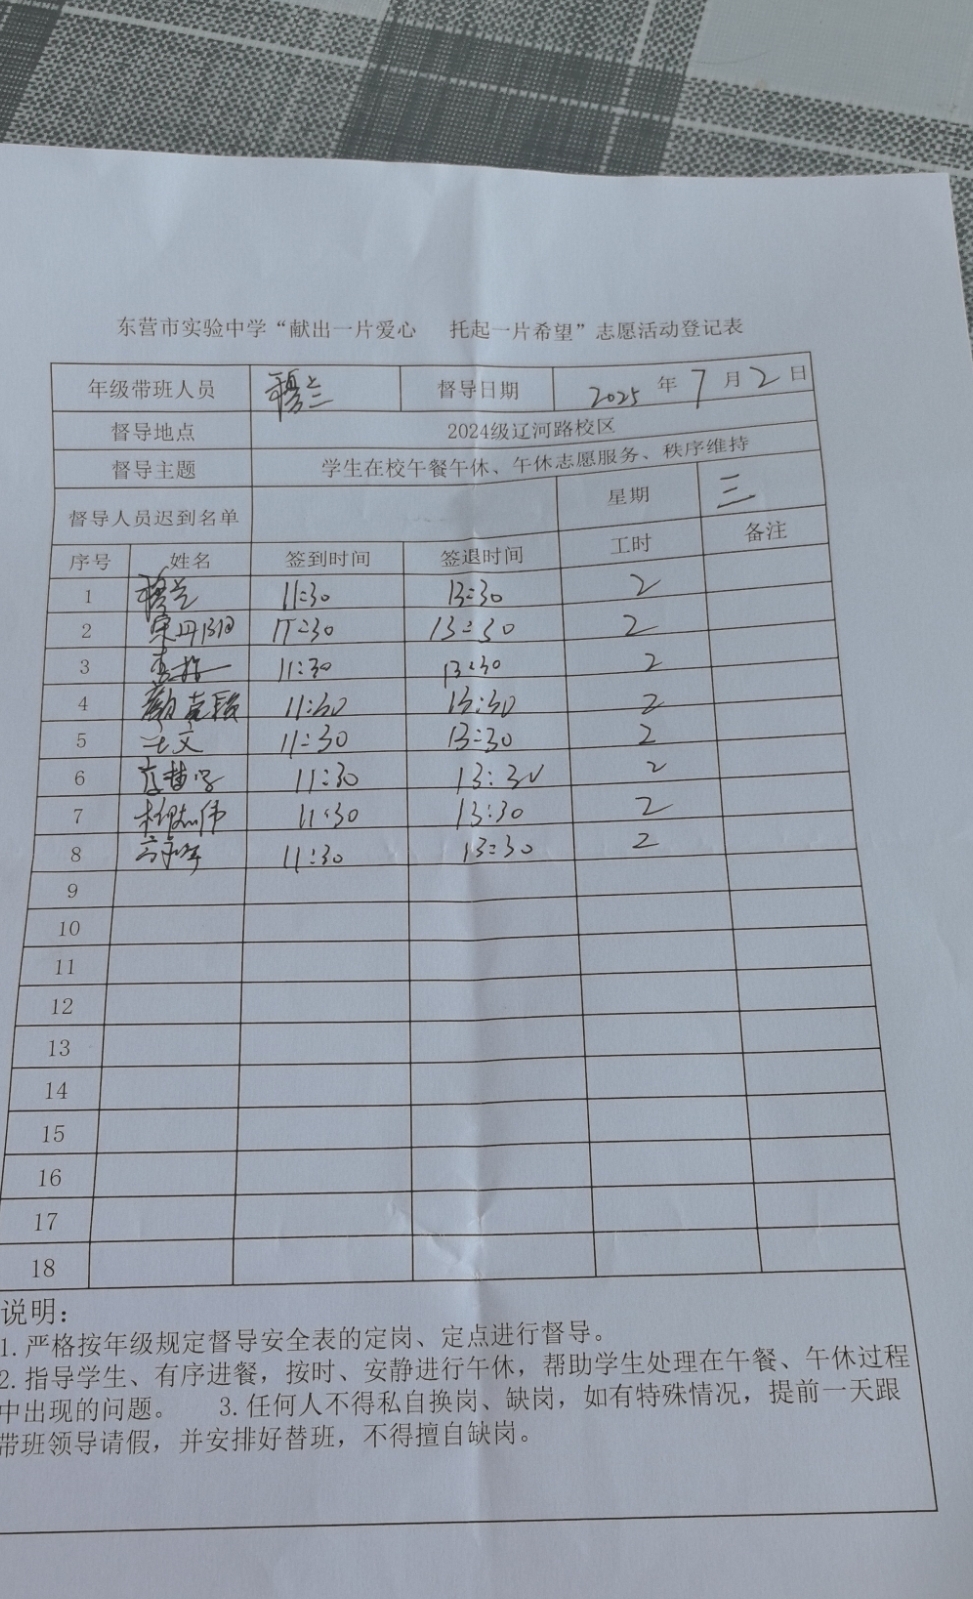 东营市实验中学“献出一片爱心 托起一片希望”志愿活动登记表
年级带班人员 穆兰 督导日期 2025 年 7 月 2 日
督导地点 2024级辽河路校区
督导主题 学生在校午餐午休、午休志愿服务、秩序维持
督导人员迟到名单 星期 三
序号 姓名 签到时间 签退时间 工时 备注
1 穆兰 11:30 13:30 2
2 11:30 13:30 2
3 11:30 13:30 2
4 11:30 13:30 2
5 11:30 13:30 2
6 11:30 13:30 2
7 11:30 13:30 2
8 11:30 13:30 2
9
10
11
12
13
14
15
16
17
18
说明:
1.严格按年级规定督导安全表的定岗、定点进行督导。
2.指导学生、有序进餐，按时、安静进行午休，帮助学生处理在午餐、午休过程
中出现的问题。 3.任何人不得私自换岗、缺岗，如有特殊情况，提前一天跟
带班领导请假，并安排好替班，不得擅自缺岗。